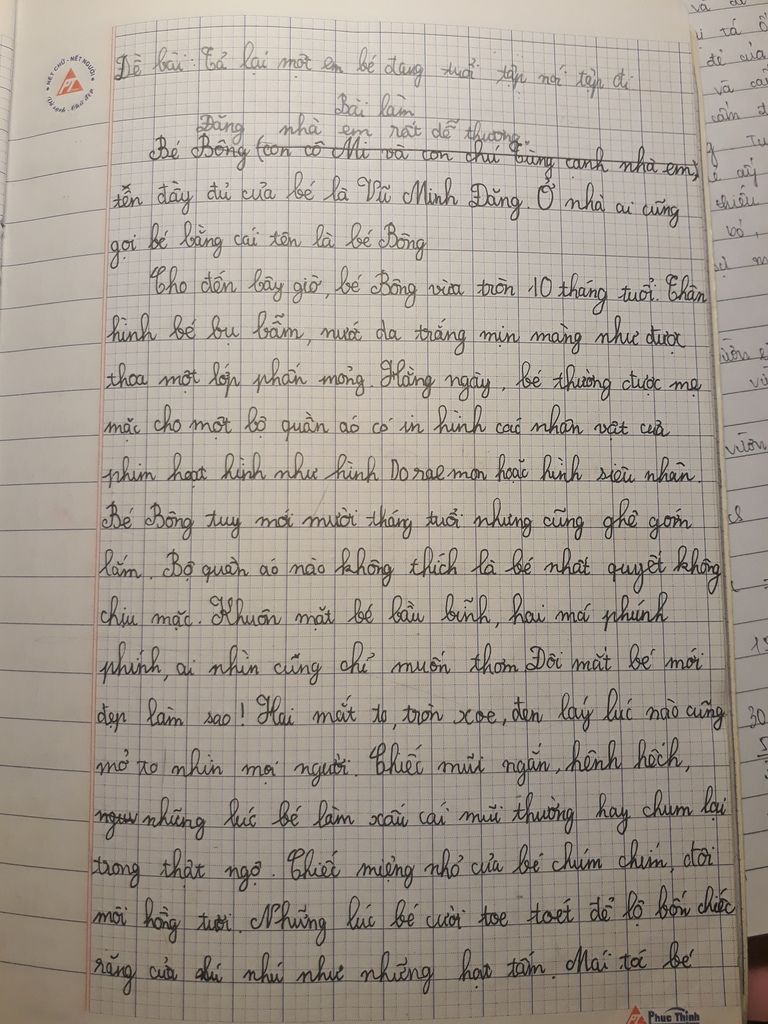 NÉT CHỮ - NẾT NGƯỜI
Đề bài: Tả lại một em bé đang tuổi tập nói tập đi
Bài làm
Đăng nhà em rất dễ thương
Bé Bông (con cô Mi và con chú Tùng cạnh nhà em)
tên đầy đủ của bé là Vũ Minh Đăng. Ở nhà ai cũng
gọi bé bằng cái tên là bé Bông
Cho đến bây giờ, bé Bông vừa tròn 10 tháng tuổi. Thân
hình bé bụ bẫm, nước da trắng mịn màng như được
thoa một lớp phấn mỏng. Hằng ngày, bé thường được mẹ
mặc cho một bộ quần áo có in hình các nhân vật của
phim hoạt hình như hình Doraemon hoặc hình siêu nhân.
Bé Bông tuy mới mười tháng tuổi nhưng cũng ghê gớm
lắm. Bộ quần áo nào không thích là bé nhất quyết không
chịu mặc. Khuôn mặt bé bầu bĩnh, hai má phính
phính, ai nhìn cũng chỉ muốn thơm Đôi mắt bé mới
đẹp làm sao! Hai mắt to, tròn xoe, đen láy lúc nào cũng
mở to nhìn mọi người. Chiếc mũi ngắn, hênh hếch,
những lúc bé làm xấu cái mũi thường hay chum lại
trong thật ngộ. Chiếc miệng nhỏ của bé chúm chím, đôi
môi hồng tươi. Những lúc bé cười toe toét để lộ bốn chiếc
răng cửa nhú như những hạt tấm. Mái tóc bé
Phuc Thinh